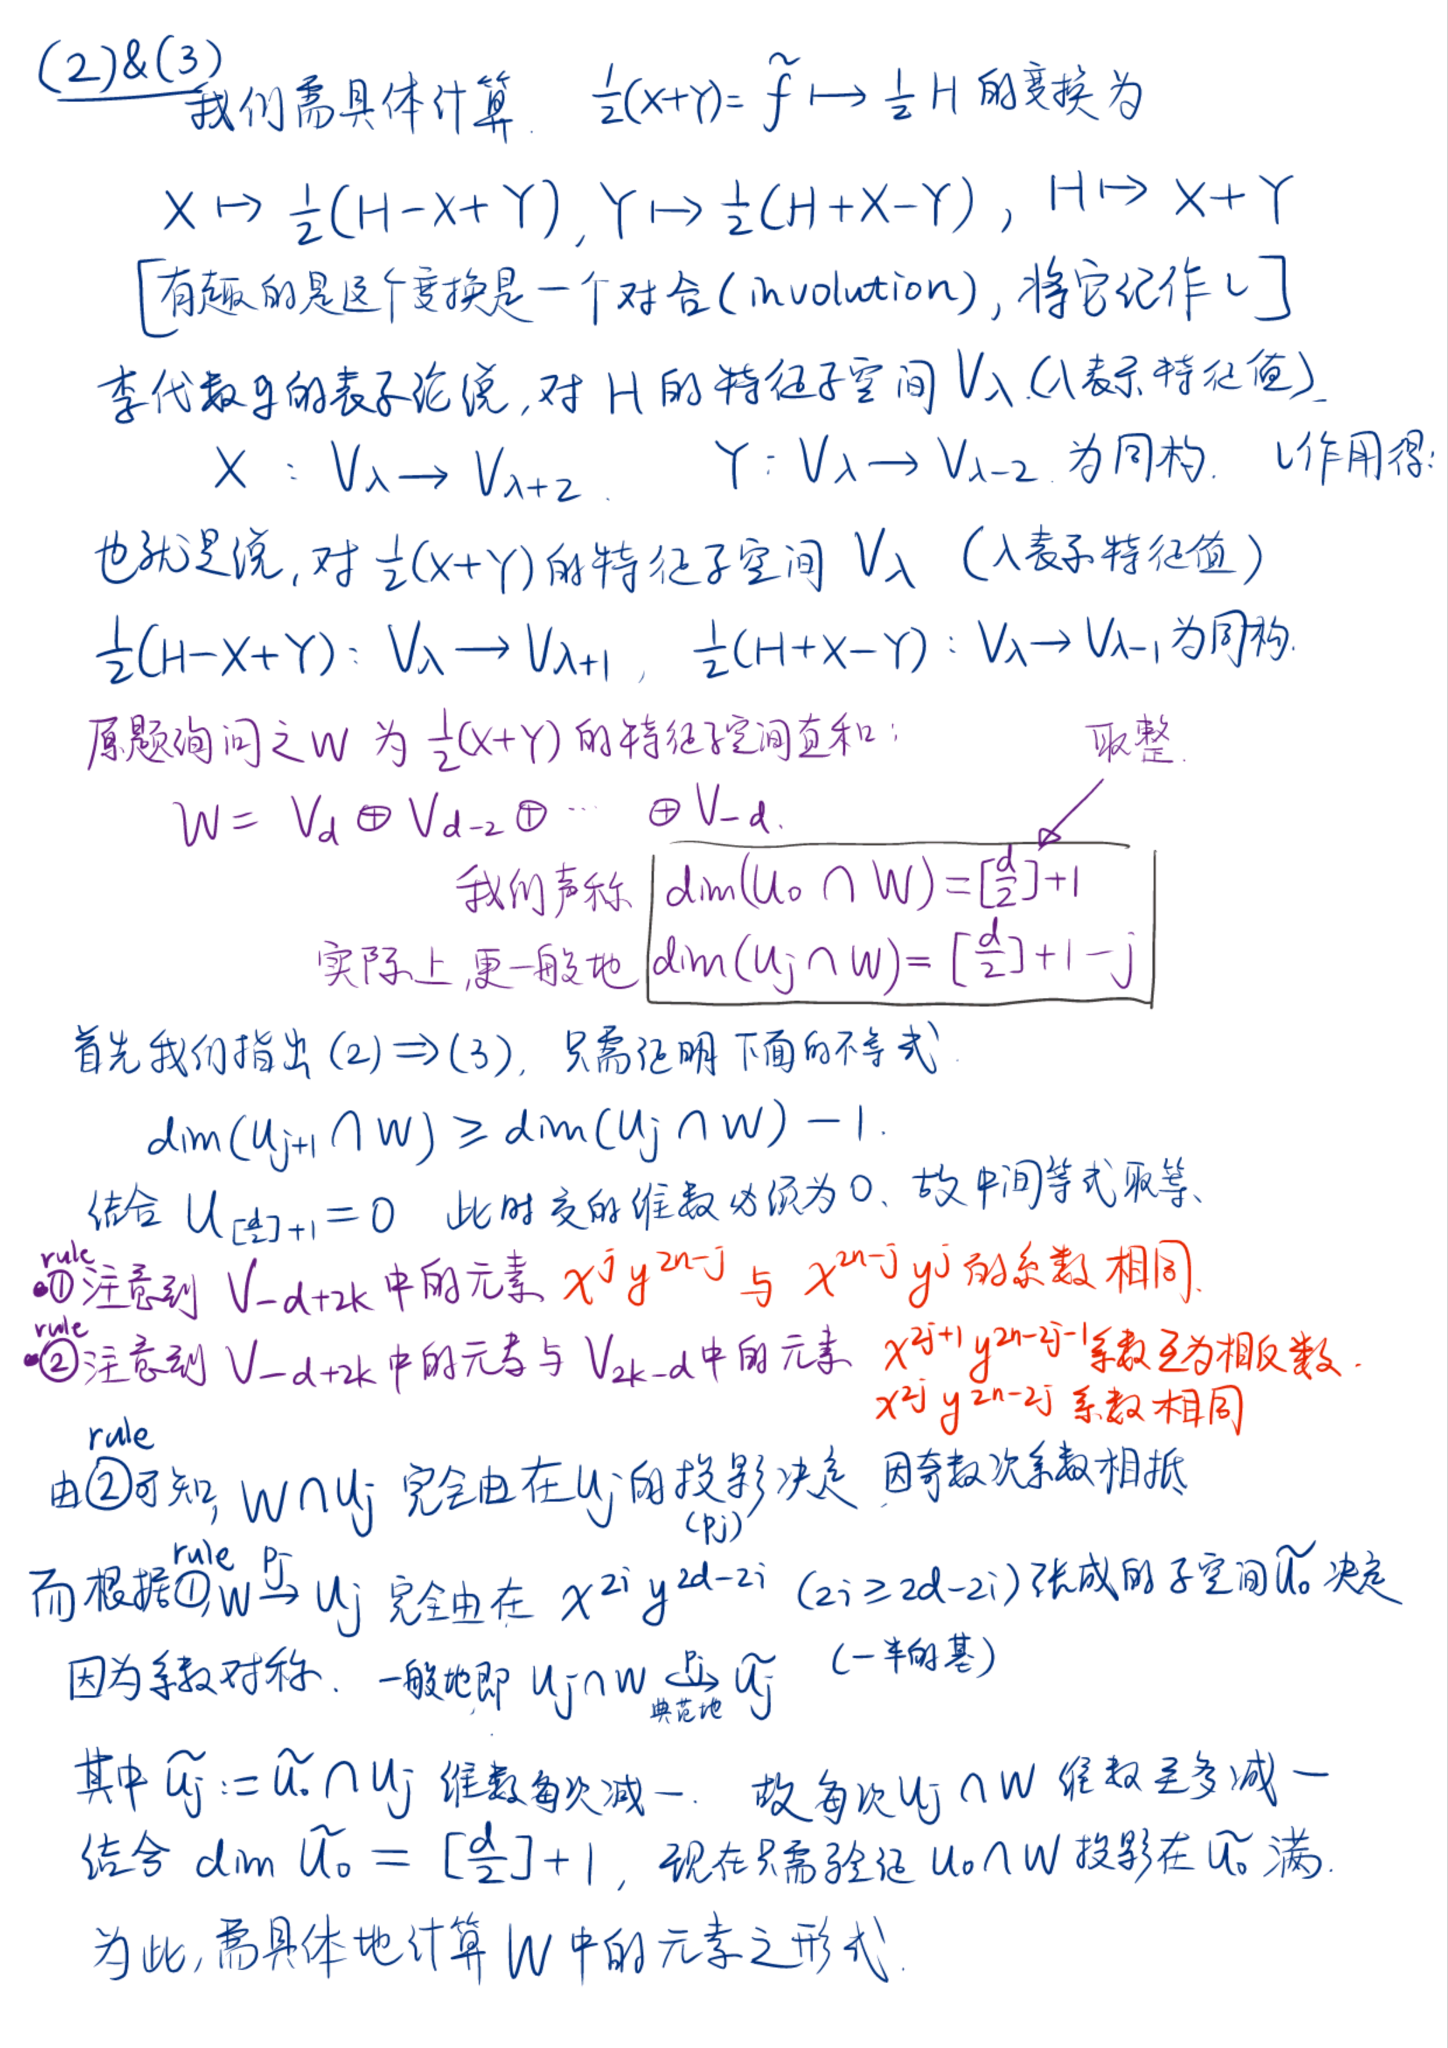 (2)&(3)
我们需具体计算. ½(X+Y)= f̃ ↦ ½H 的变换为
X ↦ ½(H-X+Y), Y ↦ ½(H+X-Y), H ↦ X+Y
[有趣的是这个变换是一个对合(involution), 将它记作 ι]
李代数 g 的表示论说, 对 H 的特征子空间 V_λ (λ表示特征值)
X : V_λ → V_{λ+2}. Y : V_λ → V_{λ-2} 为同构. ι作用得:
也就是说, 对 ½(X+Y) 的特征子空间 V_λ (λ表示特征值)
½(H-X+Y): V_λ → V_{λ+1}, ½(H+X-Y): V_λ → V_{λ-1} 为同构.
原题询问之 W 为 ½(X+Y) 的特征子空间直和: 取整.
W = V_d ⊕ V_{d-2} ⊕ ⋯ ⊕ V_{-d}.
我们声称 dim(U₀ ∩ W) = [d/2]+1
实际上, 更一般地 dim(U_j ∩ W) = [d/2]+1-j
首先我们指出 (2)⇒(3), 只需证明下面的不等式
dim(U_{j+1} ∩ W) ≥ dim(U_j ∩ W) - 1.
结合 U_{[d/2]+1} = 0 此时交的维数必须为 0、故中间等式取等、
rule
•① 注意到 V_{-d+2k} 中的元素 x^j y^{2n-j} 与 x^{2n-j} y^j 的系数相同.
rule
•② 注意到 V_{-d+2k} 中的元素与 V_{2k-d} 中的元素 x^{2j+1} y^{2n-2j-1} 系数互为相反数.
x^{2j} y^{2n-2j} 系数相同
rule
由②可知, W∩U_j 完全由在 U_j 的投影决定 因奇数次系数相抵
(p_j)
rule
而根据①, W →^{p_j} U_j 完全由在 x^{2i} y^{2d-2i} (2i ≥ 2d-2i) 张成的子空间 Ũ₀ 决定
因为系数对称. 一般地即 U_j∩W ↪^{p_j} Ũ_j (一半的基)
典范地
其中 Ũ_j := Ũ₀ ∩ U_j 维数每次减一. 故每次 U_j ∩ W 维数至多减一
结合 dim Ũ₀ = [d/2]+1, 现在只需验证 U₀∩W 投影在 Ũ₀ 满.
为此, 需具体地计算 W 中的元素之形式.